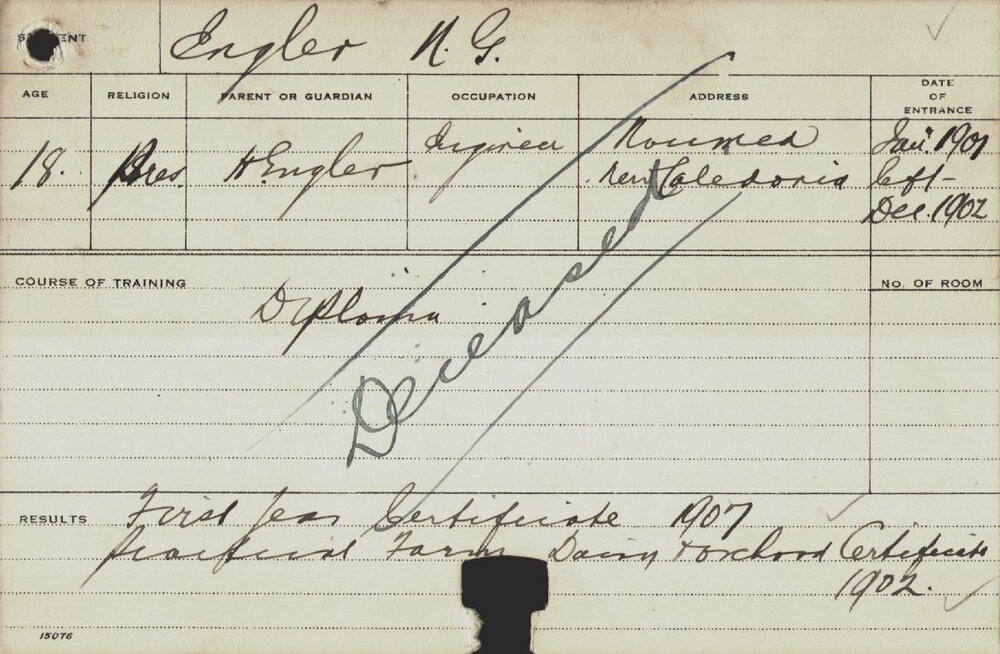 STUDENT Engler N. G.
AGE RELIGION PARENT OR GUARDIAN OCCUPATION ADDRESS DATE OF ENTRANCE
18. Pres. H. Engler Engineer Noumea Jan. 1901
New Caledonia left
Dec. 1902
COURSE OF TRAINING No. OF ROOM
Diploma
Deceased
RESULTS First Year Certificate 1901
Practical Farm Dairy & Orchard Certificate
1902.
15076